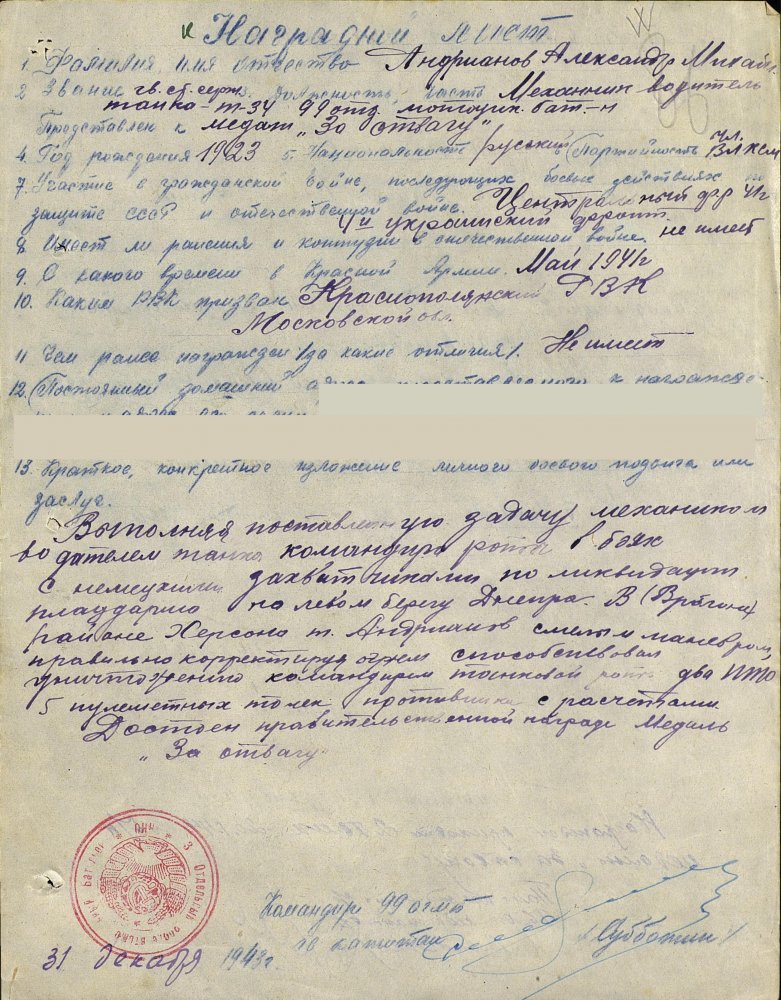 Наградной лист
1. Фамилия имя отчество Андрианов Александр Михайл
2 Звание гв. ст. серж. 3. должность, часть Механник водитель
танка-т-34 99 отд мотоцик. бат.-н
Представлен к медали „За отвагу"
4. Год рождения 1923 5. Национальность русский 6 Партийность чл. ВЛКСМ
7. Участие в гражданской войне, последующих боевых действиях по
защите СССР и отечественной войне. Центральный фр 41г
4й украинский фронт.
8. Имеет ли ранения и контузии в отечественной войне. не имеет
9. С какого времени в Красной Армии. Май 1941г
10. Каким РВК призван Краснополянский РВК
Московской обл.
11 Чем ранее награжден /за какие отличия/. Не имеет
12. (Постоянный домашний адрес представляемого к награжде-
13. Краткое, конкретное изложение личного боевого подвига или
заслуг.
Выполняя поставленную задачу механиком
водителем танка командира роты в боях
с немецкими захватчиками по ликвидации
плацдарма на левом берегу Днепра. В
районе Херсона т. Андрианов смелым маневром,
правильно корректируя огнем способствовал
уничтожению командирем танковой роты два ПТО
5 пулеметных точек противника с расчетами.
Достоен правительственной награде Медаль
„За отвагу"
Командир 99 огмб
гв капитан /Субботин/
31 декабря 1943г.